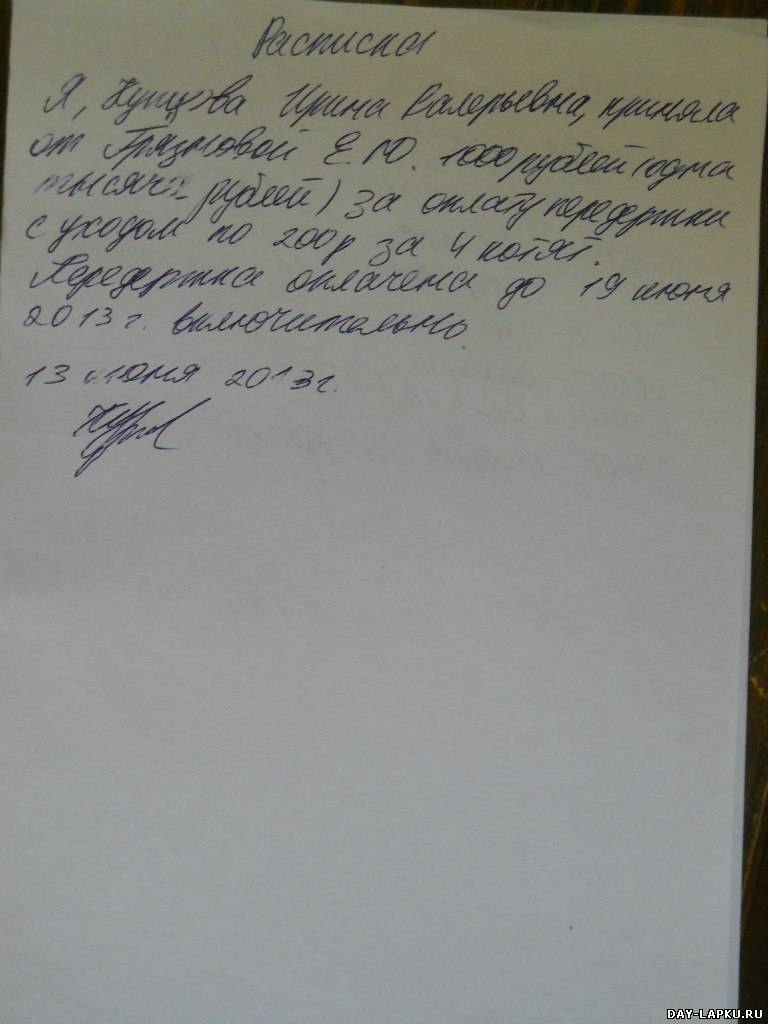 Расписка
Я, Купцова Ирина Валерьевна, приняла
от Е.Ю. 1000 рублей (одна
тысяча рублей) за оплату передержки
с уходом по 200р за 4 котят.
Передержка оплачена до 19 июня
2013 г. включительно.
13 июня 2013г.
DAY-LAPKU.RU